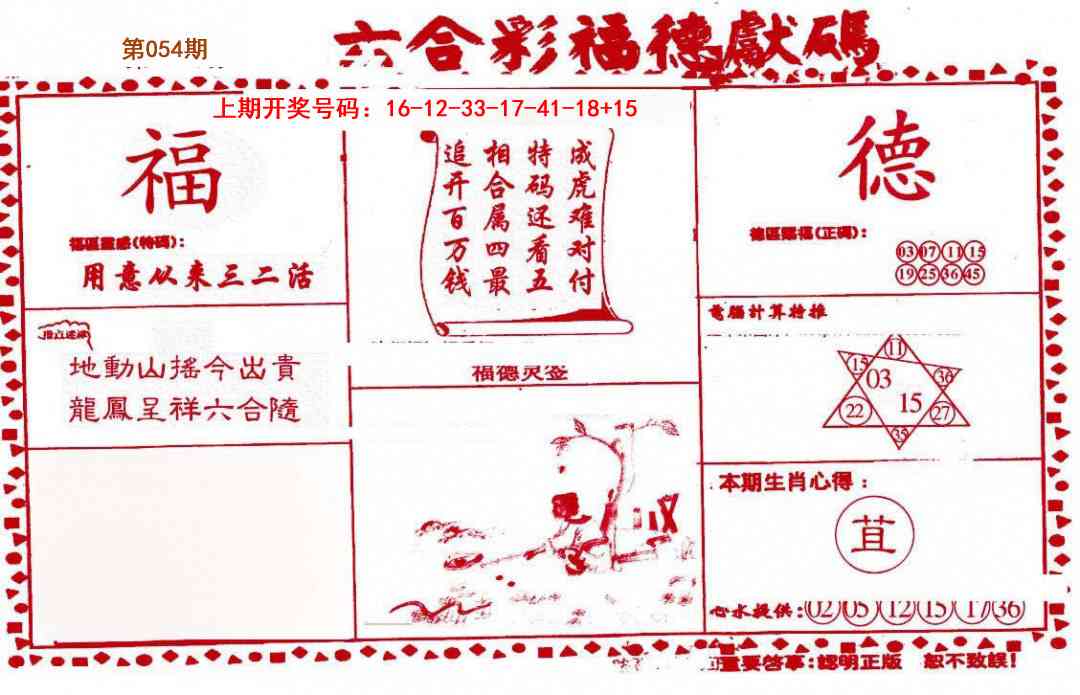 第054期
六合彩福德獻碼
上期开奖号码：16-12-33-17-41-18+15
福
福區靈感(特碼)：
用意从来三二活
地動山摇今出貴
龍鳳呈祥六合隨
成虎难对付
特码还看五
相合属四最
追开百万钱
福德灵签
德
德區賜福(正碼)：
03 07 11 15
19 25 36 45
電腦計算特推
11
15
36
03
15
22
27
35
本期生肖心得：
苴
心水提供：02 05 12 15 17 36
重要啓事：認明正版 恕不致誤！